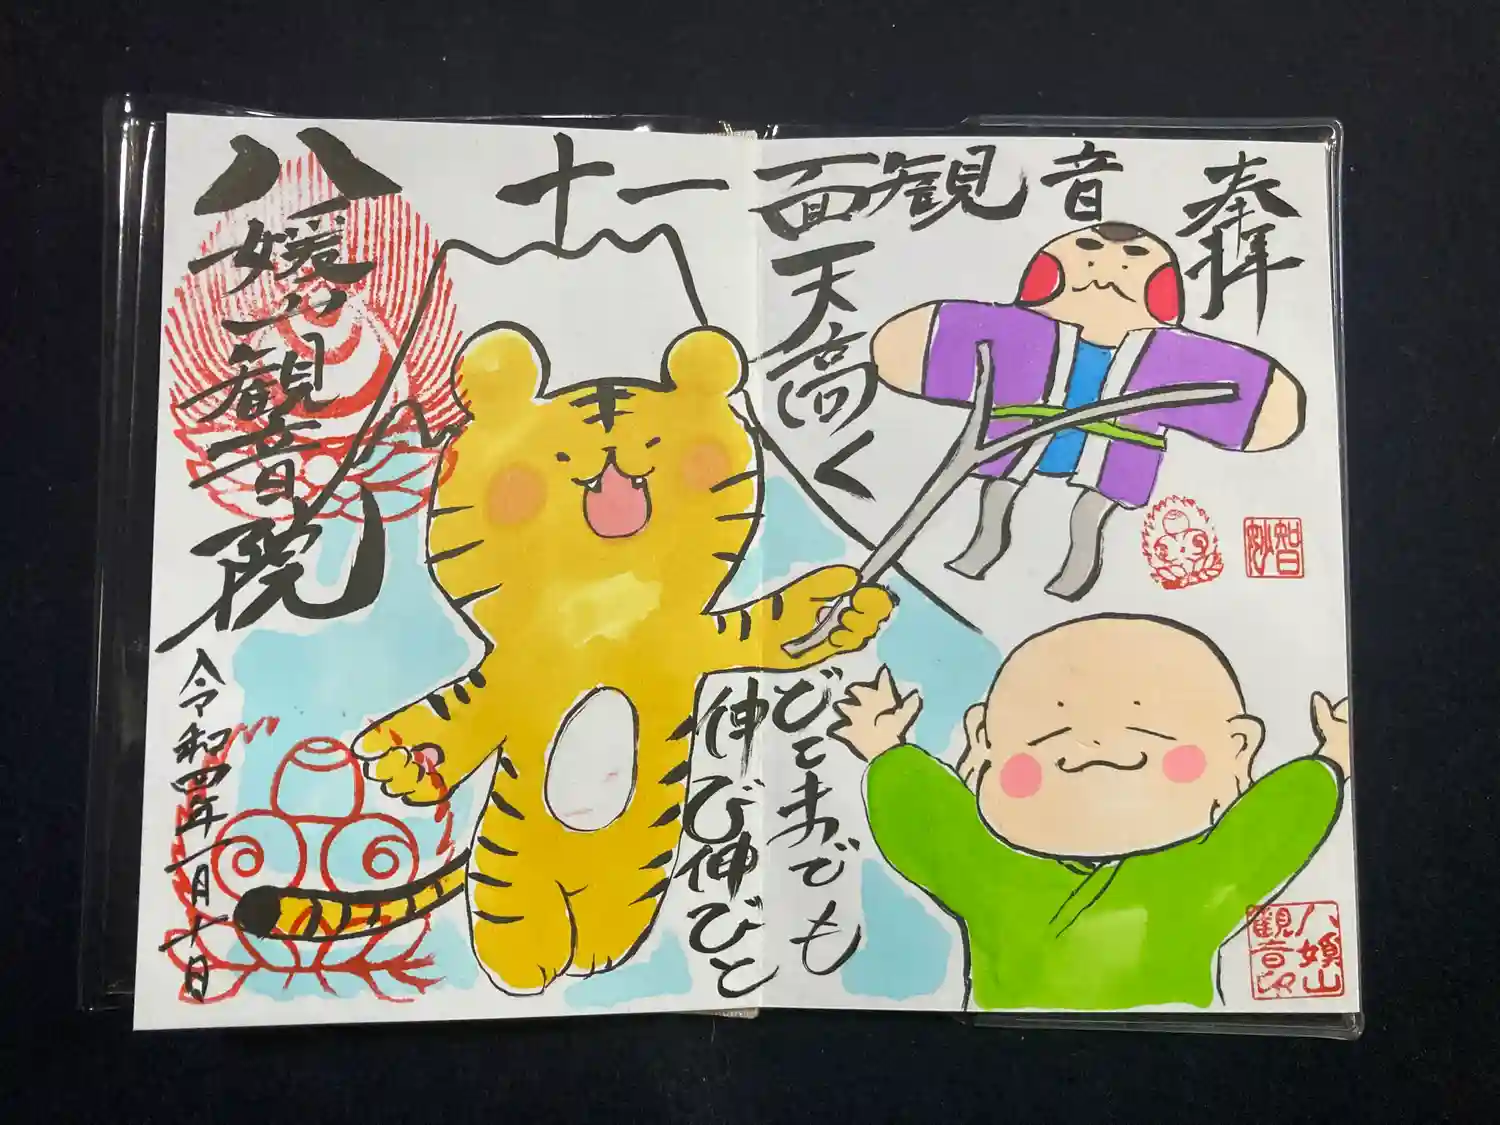 奉拝
十一面観音
天高く
どこまでも
伸び伸びと
八媛山観音院
令和四年一月十日
智妙
八媛山観音印